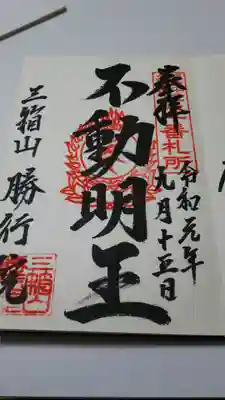 奉拝
令和元年
九月十五日
不動明王
三箱山 勝行院